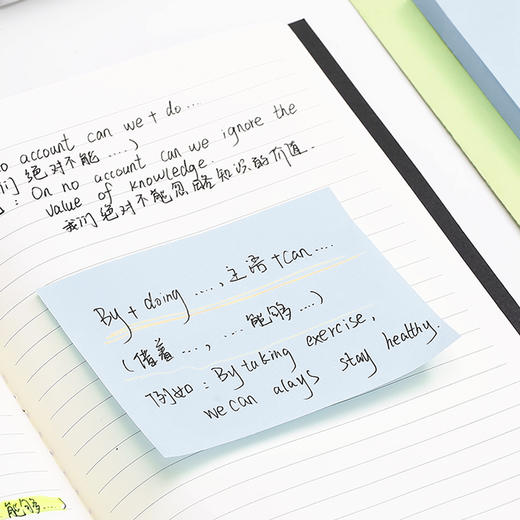 o account can we + do ...
们 绝对不能 ....)
: On no account can we ignore the
value of knowledge.
我们 绝对不能忽略知识的价值.
By + doing ...., 主 +can ....
(借着 ...., .... 能够 ....)
例如 : By taking exercise,
we can alays stay healthy.
能够 ....)